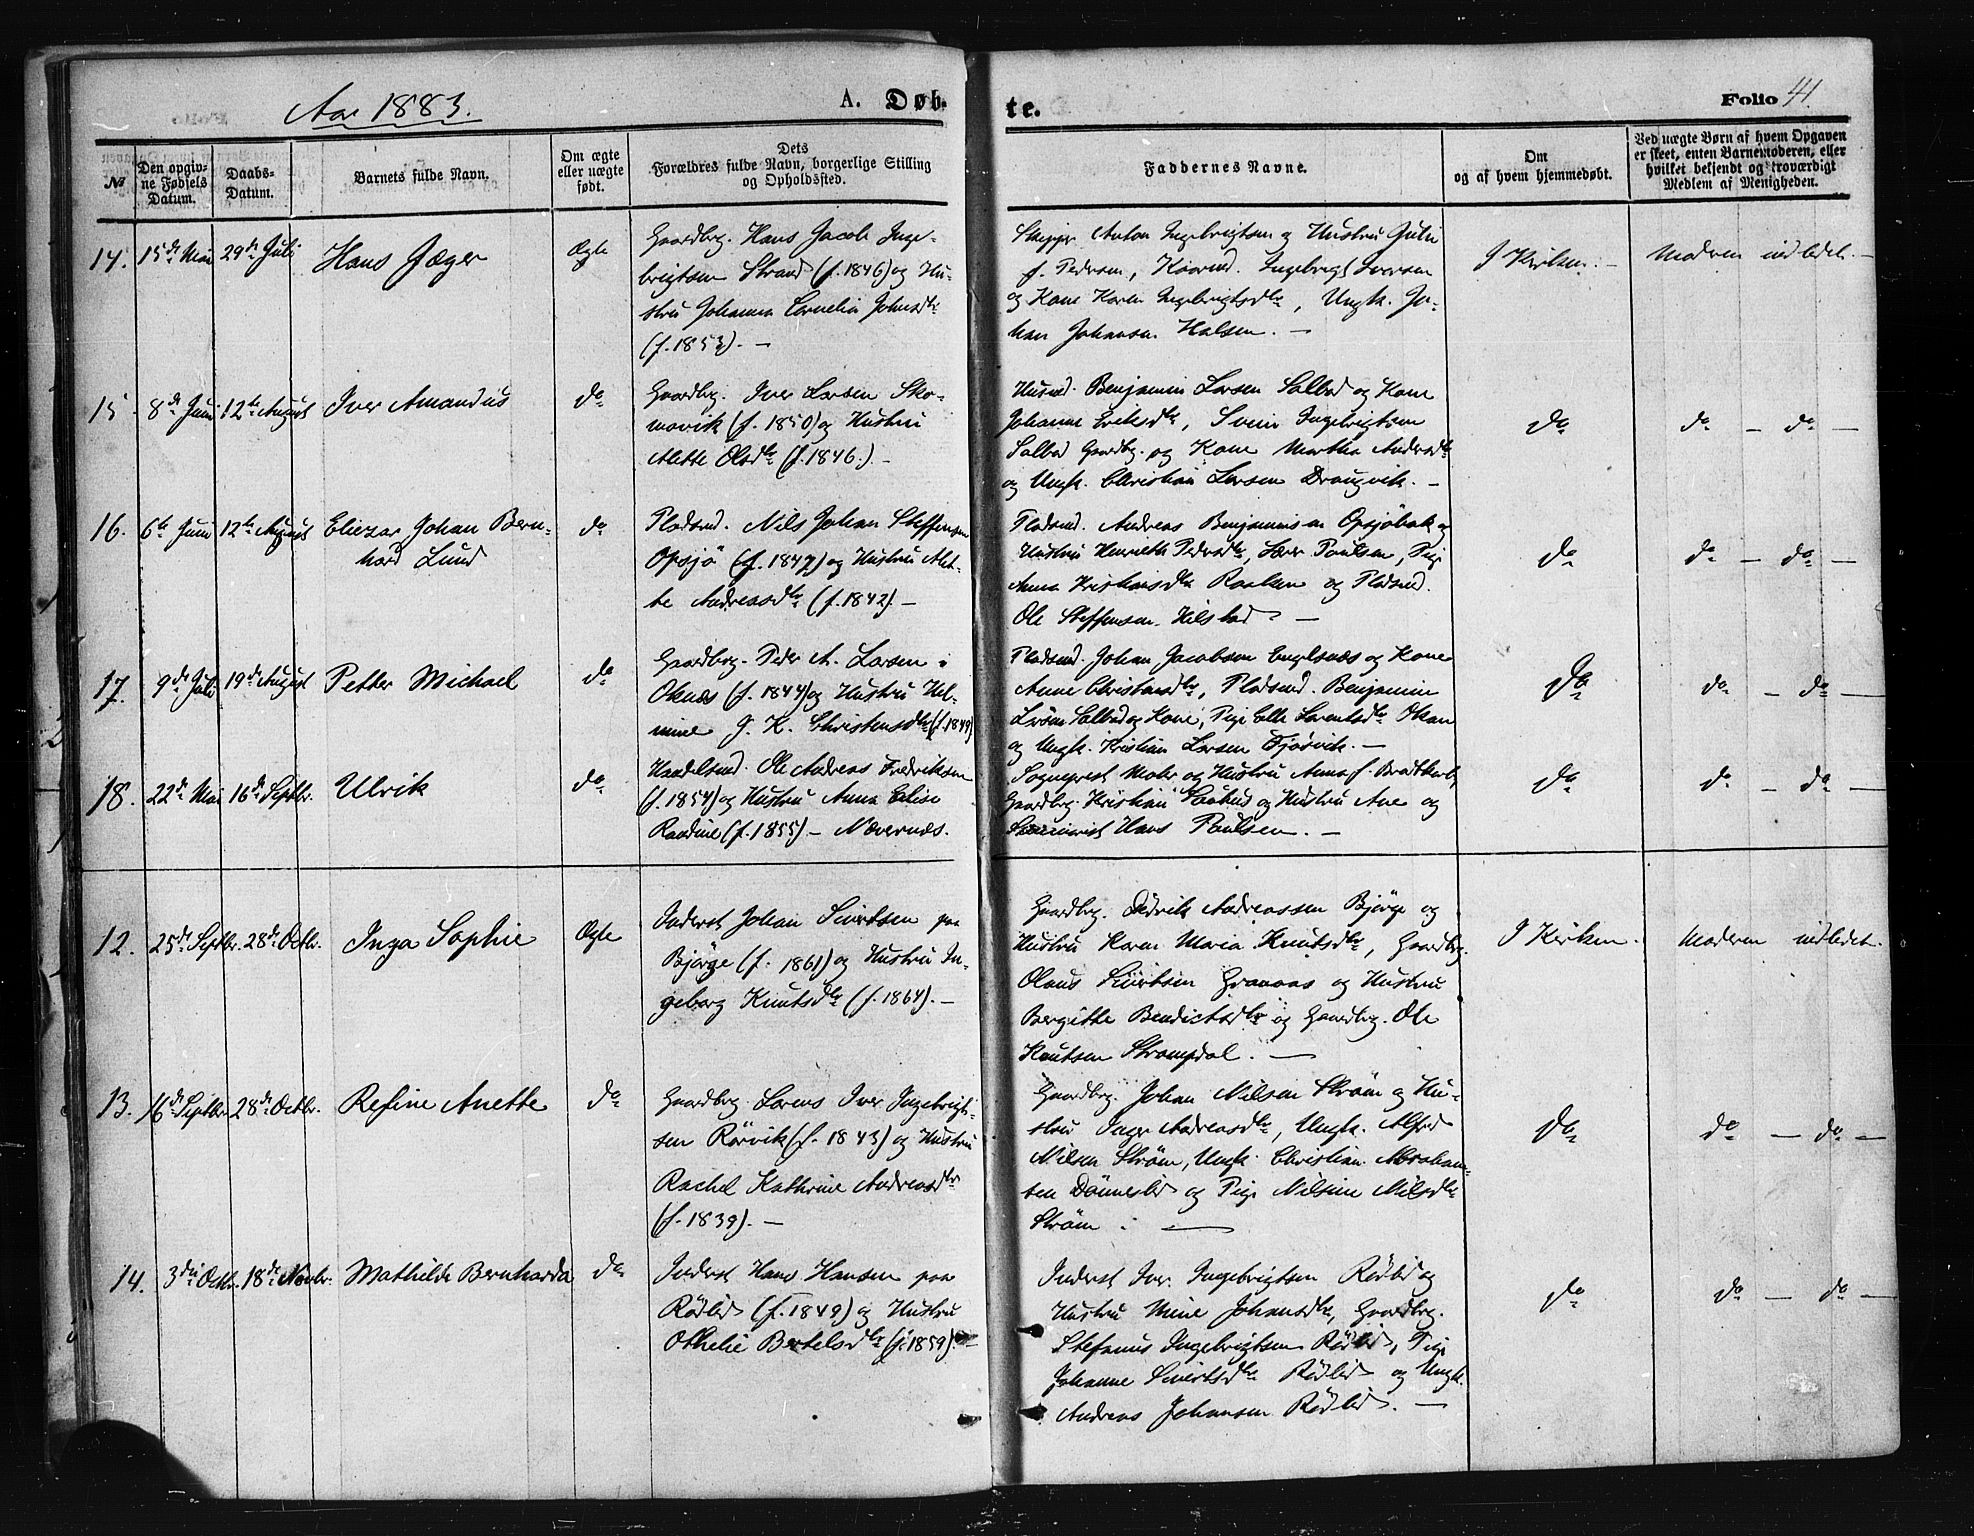 Aar 1883.
A. Døb-
te.
Folio 41.
№
Den opgiv-
ne Fødsels
Datum.
Daabs-
Datum.
Barnets fulde Navn.
Om ægte
eller uægte
født.
Dets
Forældres fulde Navn, borgerlige Stilling
og Opholdssted.
Faddernes Navne.
Om
og af hvem hjemmedøbt.
Ved uægte Børn af hvem Opgaven
er skeet, enten Barnemoderen, eller
hvilket bekjendt og troværdigt
Medlem af Menigheden.
14. 15de Mai 29de Juli Hans Jæger Ægte
Gaardbrg. Hans Jacob Inge-
brigtsen Strand (f. 1846) og Hu-
stru Johanna Cornelia Johnsdtr
(f. 1853). —
Skipper Anton Ingebrigtsen og Hustru Juli
f. Pedersen, Kaarmd. Ingebrigt Iversen
og Kone Karen Ingebrigtsdtr, Ungk. Jo-
han Johansen Halsen. —
I Kirken. — Moderen indledet. —
15. 8de Juni 12te August Iver Amandus do
Gaardbrg. Iver Larsen Sko-
movik (f. 1850) og Hustru
Alette Olsdtr (f. 1846.) —
Husmd. Benjamin Larsen Salbod og Kone
Johanne Eriksdtr, Svein Ingebrigtsen
Salbod Gaardbg. og Kone Martha Andersdtr
og Ungk. Christian Larsen Draugvik. —
do do — do —
16. 6te Juni 12te August Eliezar Johan Bern-
hard Lund do
Pladsmd. Nils Johan Steffensen
Opsjö (f. 1847) og Hustru Alet-
te Andreasdtr (f. 1842). —
Pladsmd. Andreas Benjaminsen Opsjöbak og
Hustru Henriette Pedersdtr, Lærer Paulsen, Pige
Anna Kristiansdtr og Pladsmd.
Ole Steffensen Hilstad. —
do do — do —
17. 9de Juli 19de August Petter Michael do
Gaardbrg. Peder A. Larsen i
Oknæs (f. 1844) og Hustru Hel-
mine J. K. Christensdtr (f. 1849)
Pladsmd. Johan Jacobsen Englsnæs og Kone
Anne Christiansdtr, Pladsmd. Benjamin
Larsen Salbod og Kone, Pige Elle Lorentsdtr
og Ungk. Kristian Larsen Fjösvik. —
Do do — do —
18. 22de Mai 16de Septbr. Ulrik do
Handelsmd. Ole Andreas Fredriksen
(f. 1854) og Hustru Anna Elise
Randine (f. 1855) — Nævernæs.
Sogneprest Mohr og Hustru Anna f. Bratkorb,
Gaardbg. Kristian og Hustru Ane og
Seminarist Hans Poulsen. —
do do — do —
12. 25de Septbr. 28de Octbr. Inga Sophie Ægte
Inderst Johan Sivertsen paa
Bjørge (f. 1861) og Hustru In-
geborg Knutsdtr (f. 1864). —
Gaardbrg. Didrik Andreassen Bjørge og
Hustru Karen Maria Knutsdtr, Gaardbrg.
Olaus Sivertsen Granaas og Hustru
Bergitte Bendictsdtr og Gaardbrg. Ole
Knutsen Strompdal. —
I Kirken. Moderen indledet.
13. 16de Septbr. 28de Octbr. Resine Anette do
Gaardbrg. Lorens Iver Ingebrigt-
sen Rörvik (f. 1843) og Hustru
Rachel Kathrine Andreasdtr
(f. 1839). —
Gaardbrg. Johan Nilsen Strøm og Hu-
stru Inger Andreasdtr, Ungk. Alfred
Nilsen Strøm, Ungk. Christian Abraham-
sen Dønneslid og Pige Nilsine Nilsdtr
Strøm. —
Do do — do —
14. 3die Octbr. 18de Novbr. Mathilde Bernharda do
Inderst Hans Hansen paa
Rödlid (f. 1849) og Hustru
Othelie Bertelsdtr (f. 1859). —
Inderst Iver Ingebrigtsen Rödlid og
Hustru Mine Johansdtr, Gaardbrg.
Stefanus Ingebrigtsen Rödlid, Pige
Johanne Sivertsdtr Rödlid og Ungk.
Andreas Johansen Rödlid. —
do do — do —